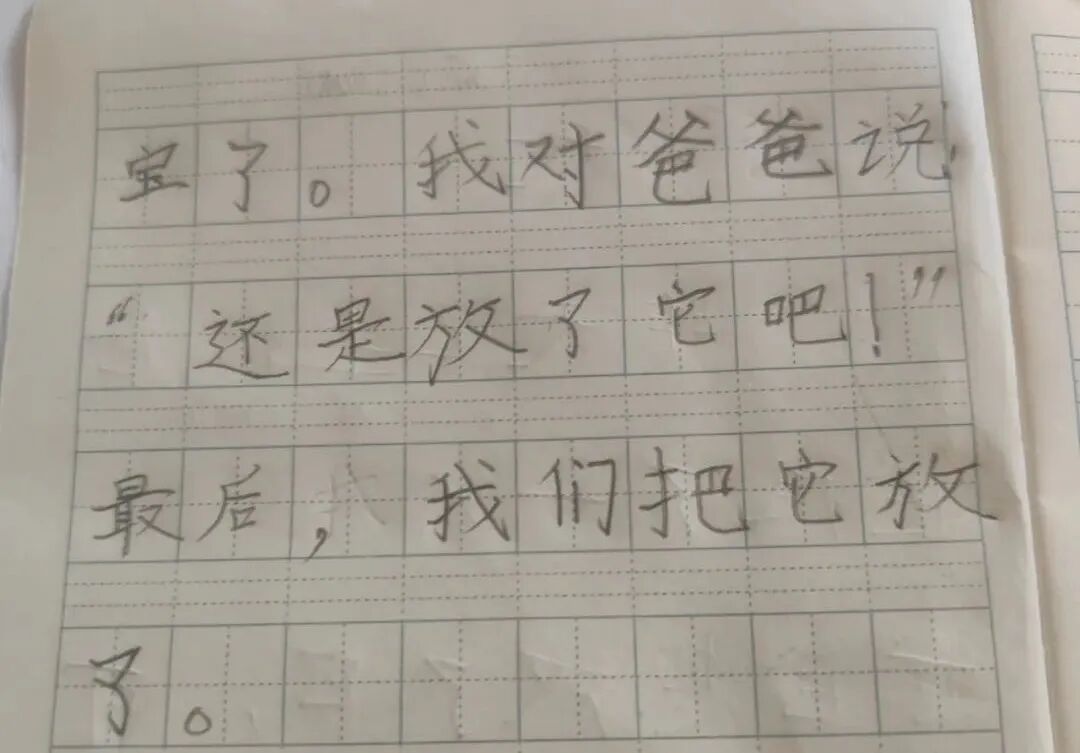 宝了。我对爸爸说：
“还是放了它吧！”
最后，我们把它放
了。